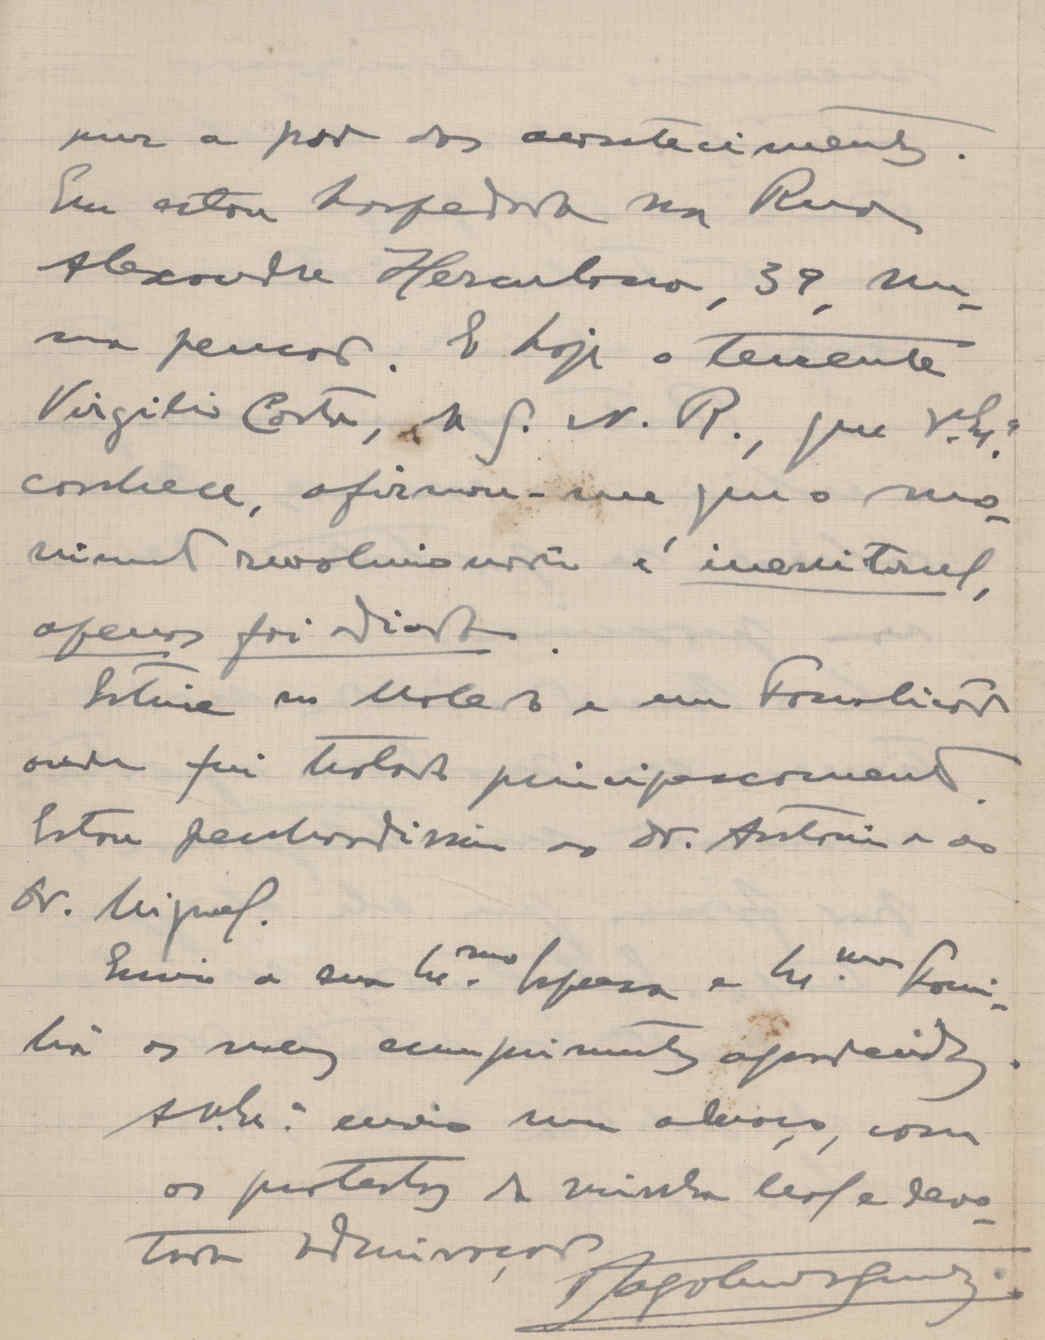 nue a par dos acontecimentos.
Eu estou hospedado na Rua
Alexandre Herculano, 39, nu-
ma pensão. E hoje o tenente
Virgilio Costa, da G. N. R., que V. Ex.ª
conhece, afirmou-me que o mo-
vimento revolucionário é inevitavel,
apenas foi adiado.
Estive no Molêdo e em Famalicão
onde fui tratado principescamente.
Estou penhoradissimo ao dr. Antonio e ao
dr. Miguel.
Envio a sua Ex.ma Esposa e Ex.ma Fami-
lia os meus cumprimentos agradecidos.
A V. Ex.ª envio um abraço, com
os protestos da minha leal e devo-
tada admiração